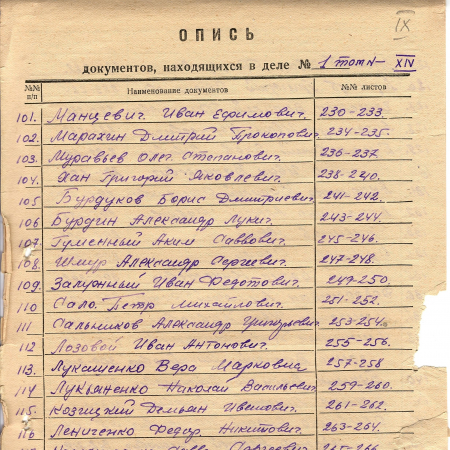 IX
ОПИСЬ
документов, находящихся в деле № 1 том № XIV
№№ п/п Наименование документов №№ листов
101. Манцевич Иван Ефимович. 230-233.
102. Марахин Дмитрий Прокопович. 234-235.
103. Муравьев Олег Степанович. 236-237
104. Хан Григорий Яковлевич. 238-240.
105 Бурдуков Борис Дмитриевич. 241-242.
106 Бурдин Александр Лукич. 243-244.
107. Гуменный Аким Саввович. 245-246.
108. Шмур Александр Сергеевич. 247-248.
109. Залунный Иван Федотович. 249-250.
110 Сало Петр Михайлович. 251-252.
111 Сальников Александр Григорьевич. 253-254.
112 Лозовой Иван Антонович. 255-256.
113. Лукашенко Вера Марковна 257-258
114 Лукьяненко Николай Васильевич. 259-260.
115. Козицкий Демьян Иванович. 261-262.
116 Лениченко Федор Никитович. 263-264.
Сергеевич 265-266